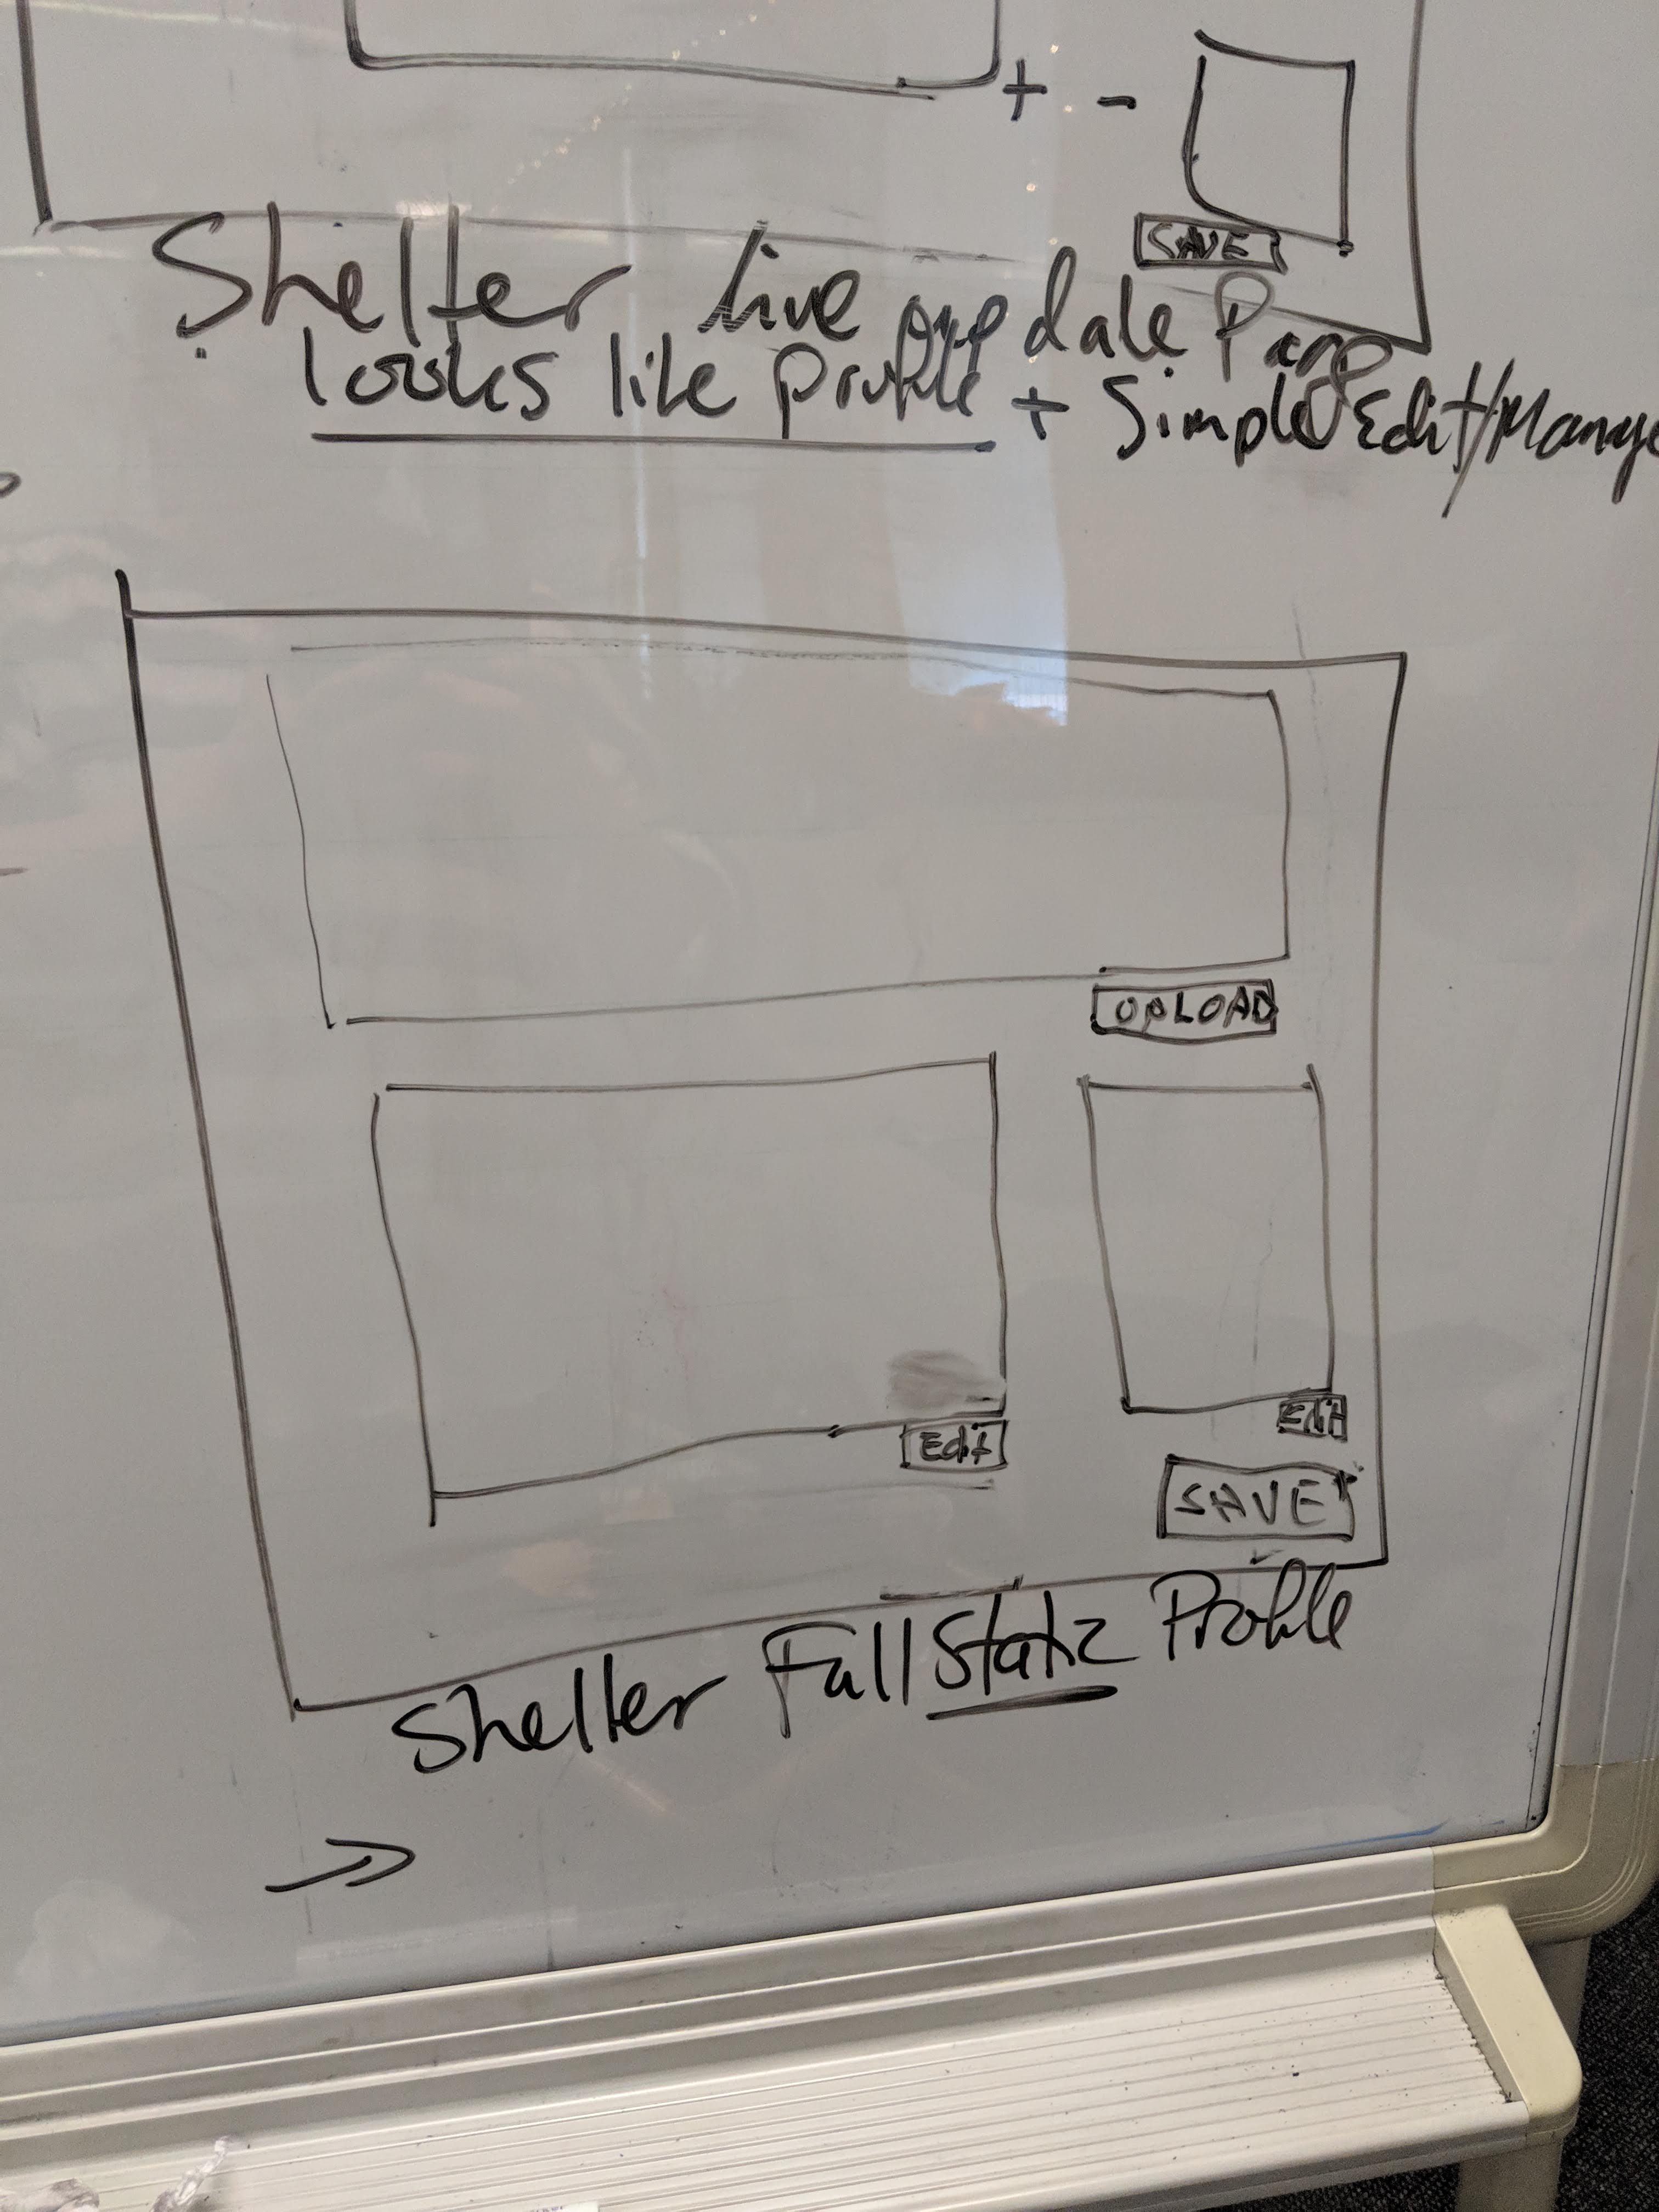 + -
SAVE
Shelter live update Page
looks like profile + Simple Edit/Manage
UPLOAD
Edit
Edit
SAVE
Shelter Full Static Profile